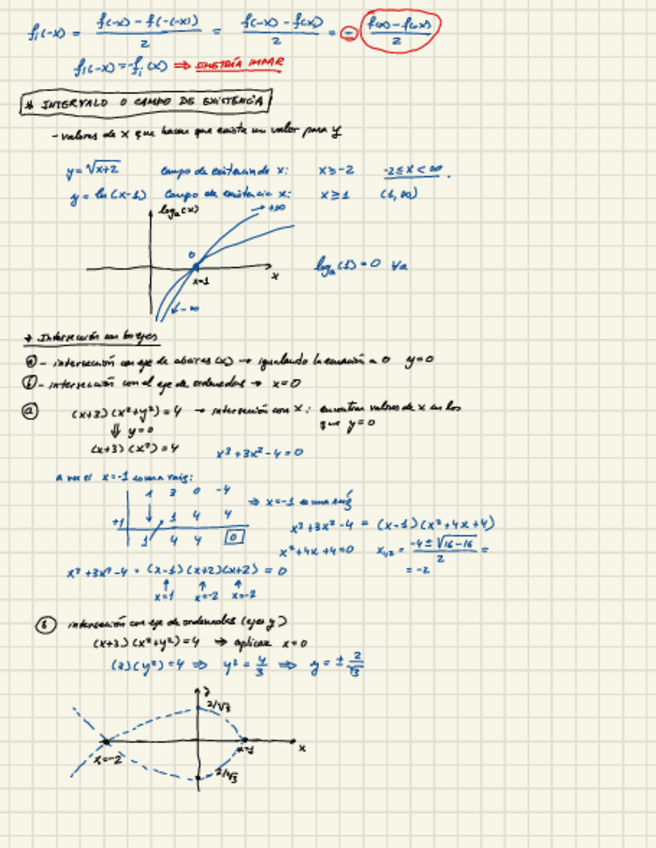 f₁(-x) = (f(-x) - f(-(-x))) / 2 = (f(-x) - f(x)) / 2 = - (f(x) - f(-x)) / 2
f₁(-x) = -f₁(x) ⇒ SIMETRÍA IMPAR
* INTERVALO O CAMPO DE EXISTENCIA
- valores de x que hacen que exista un valor para y
y = √(x+2) campo de existencia de x: x ≥ -2 -2 ≤ x < ∞.
y = ln(x-1) campo de existencia x: x ≥ 1 (1, ∞)
logₐ(x) → +∞
0
x=1 x
logₐ(1) = 0 ∀a
↙ -∞
* Intersección con los ejes
ⓐ - intersección con eje de abcisas (x) → igualando la ecuación a 0 y=0
ⓑ - intersección con el eje de ordenadas → x=0
ⓐ (x+3)(x²+y²) = 4 → intersección con x: encontrar valores de x en los
⇓ y=0 que y=0
(x+3)(x²) = 4 x³+3x²-4=0
a ver si x=-1 es una raíz:
1 3 0 -4
⇒ x=-1 es una raíz
+1 1 4 4
1 4 4 0
x³+3x²-4 = (x-1)(x²+4x+4)
x²+4x+4=0 x₁,₂ = (-4 ± √(16-16)) / 2 =
= -2
x³+3x²-4 = (x-1)(x+2)(x+2) = 0
↑ ↑ ↑
x=1 x=-2 x=-2
ⓑ intersección con eje de ordenadas (eje y)
(x+3)(x²+y²) = 4 → aplicar x=0
(3)(y²) = 4 ⇒ y² = 4/3 ⇒ y = ± 2/√3
y
2/√3
x=-2 x=1 x
-2/√3